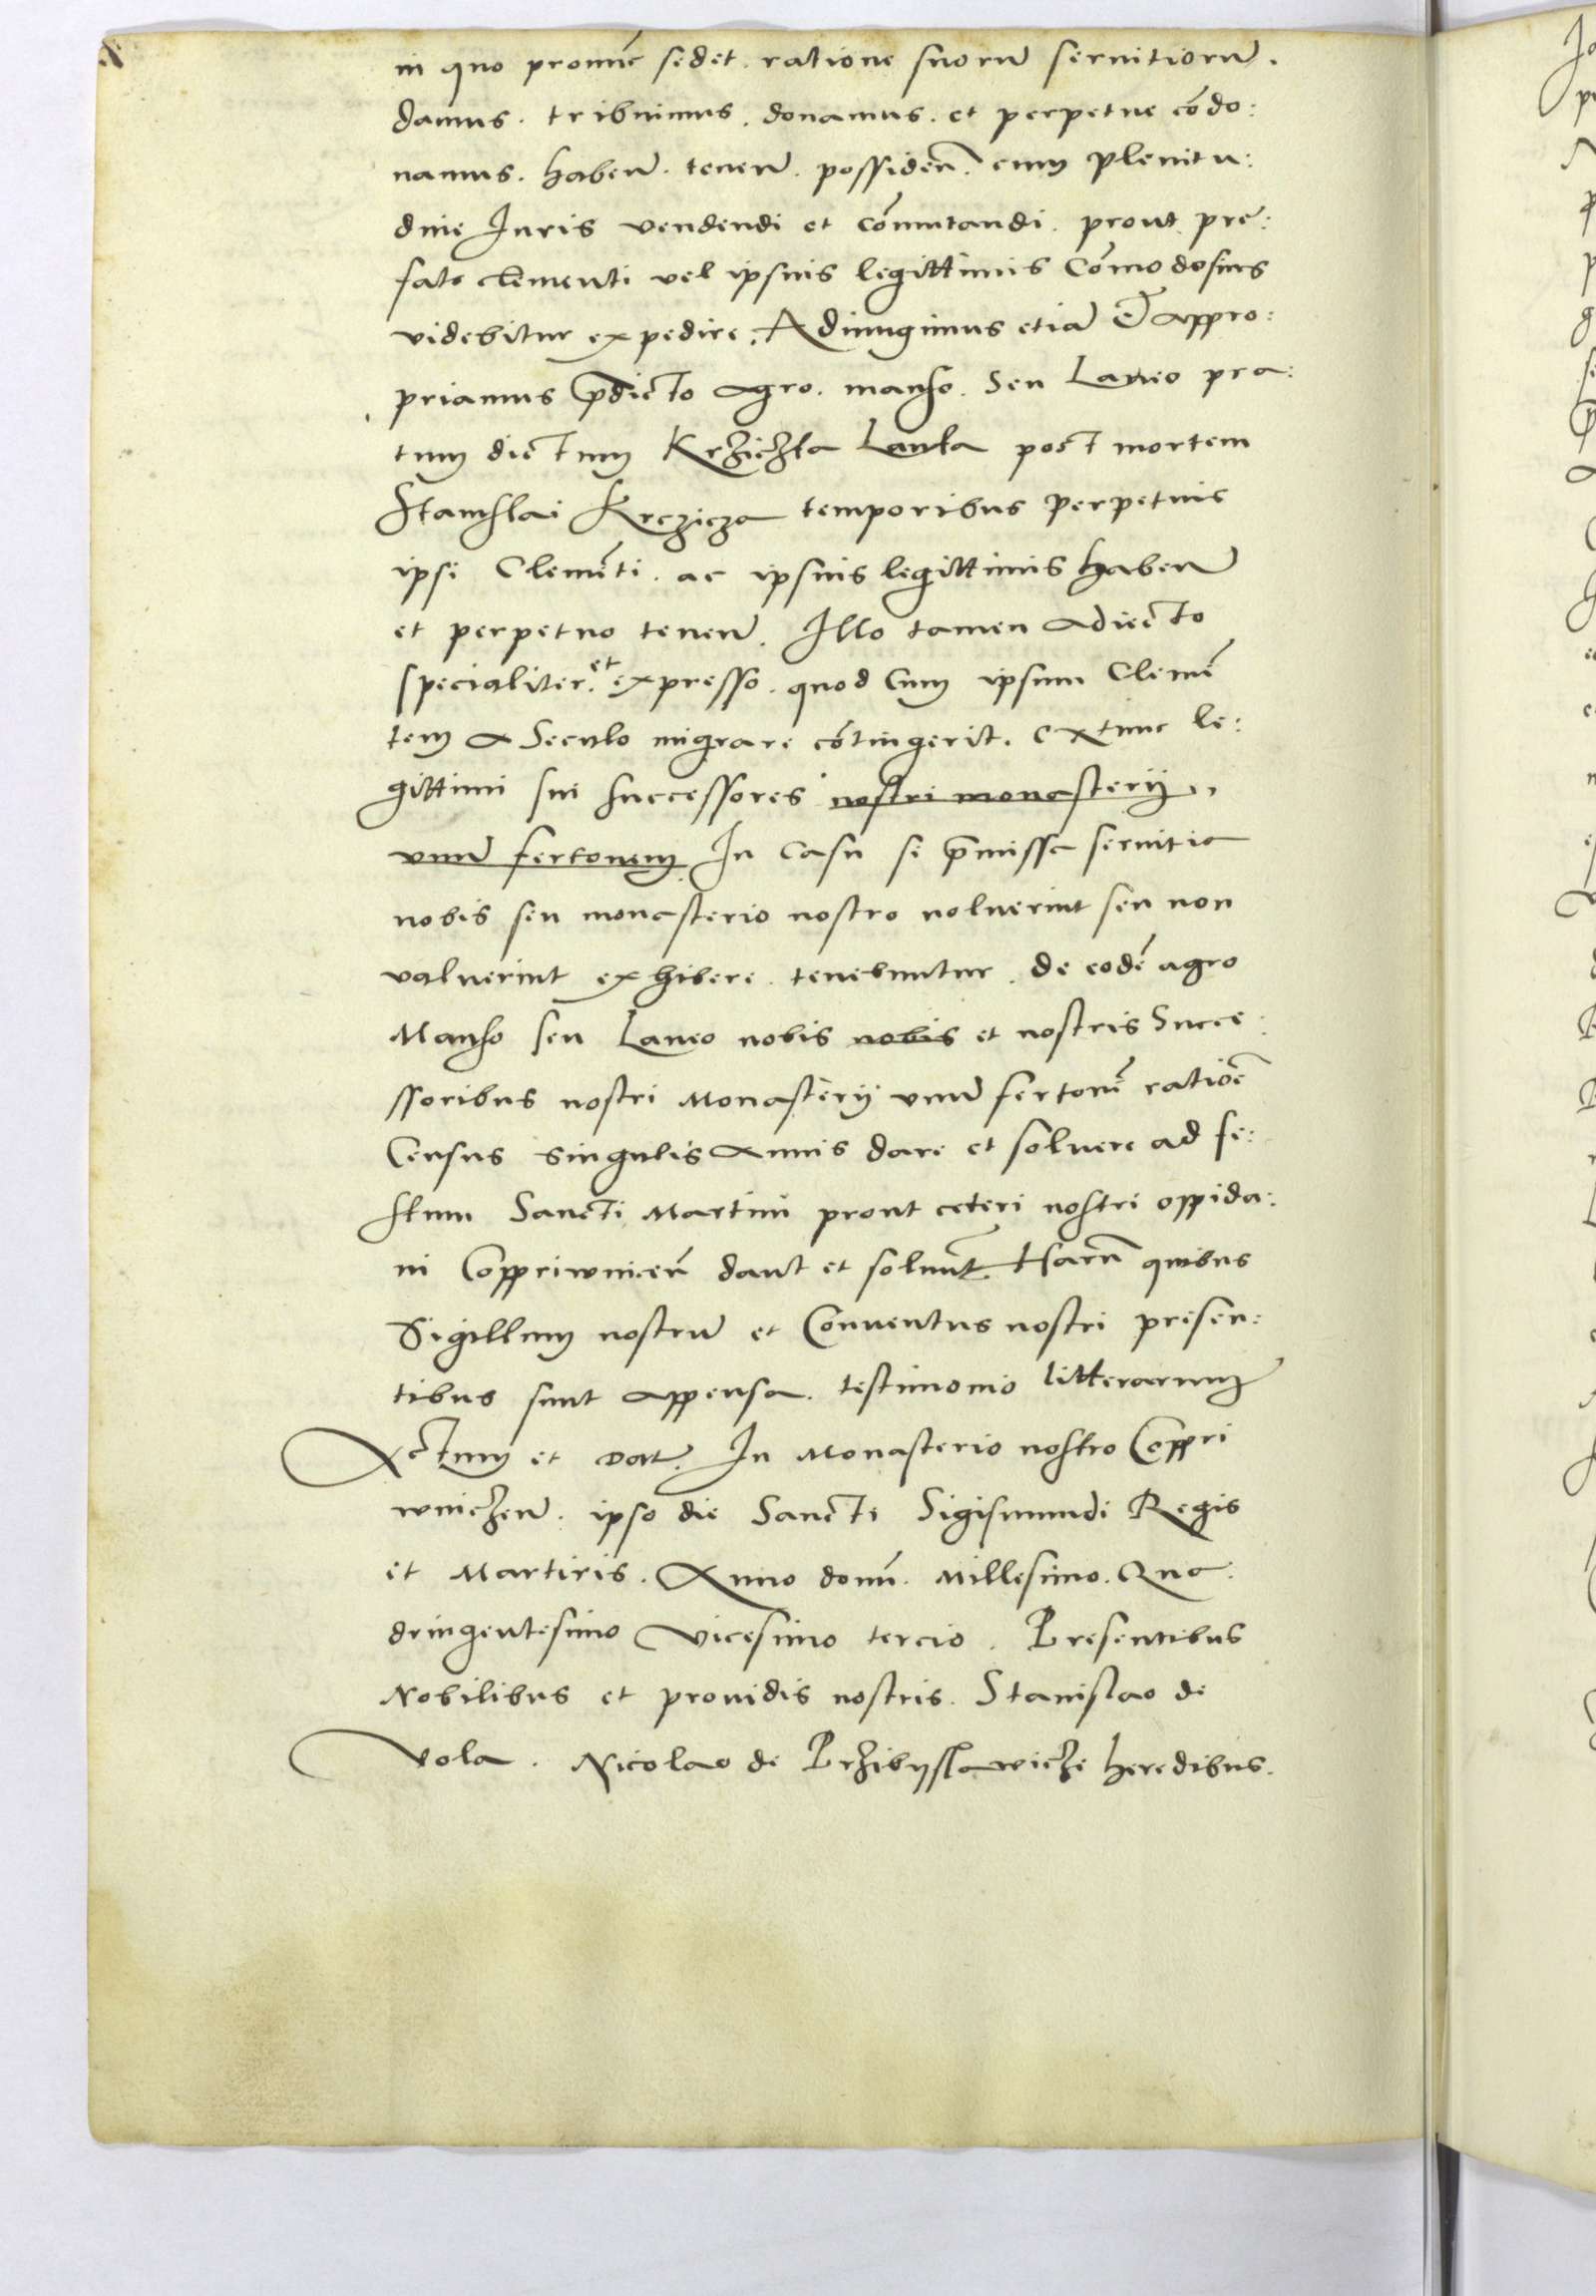 in quo pronūc sedet. ratione suorū seruitiorū.
damus. tribuimus. donamus. et perpetue cōdo:
namus. haben̄. tenen̄. possiden̄. cum plenitu:
dine Iuris vendendi et cōmutandi. prout pre:
fato clementi vel ipsius legittimis Cōmodosius
videbitur expedire. Adiungimus etiā et appro:
priamus p̄dicto agro. manso. Seu Laneo pra:
tum dictum Krzichza Lanka post mortem
Stanislai Krczicza temporibus perpetuis
ipsi Clemēti. ac ipsius legittimis haben̄
et perpetuo tenen̄. Illo tamen adiecto
specialiter. et expresso. quod Cum ipsum Clemē
tem a Seculo migrare cōtingerit. extunc le:
gittimi sui successores nostri monasterij
vnū fertonem In casu se p̄missa seruitia
nobis seu monasterio nostro noluerint seu non
valuerint exhibere. tenebuntur. de eodē agro
Manso seu Laneo nobis nobis et nostris Succe:
ssoribus nostri Monasterij vnū fertonē ratiōe
Census singulis Annis dare et soluere ad fe:
stum Sancti Martini prout ceteri nostri oppida:
ni Coppriwnicen̄ dant et soluūt. Harū quibus
Sigillum nostrū et Conuentus nostri presen:
tibus sunt appensa. testimonio litterarum
Actum et Dat̄. In Monasterio nostro Coppri
wniczen̄. ipso die Sancti Sigismundi Regis
et Martiris. Anno domī. Millesimo. Qua:
dringentesimo Vicesimo tercio. Presentibus
Nobilibus et prouidis nostris. Stanislao de
Vola. Nicolao de Przibyslawicze heredibus.